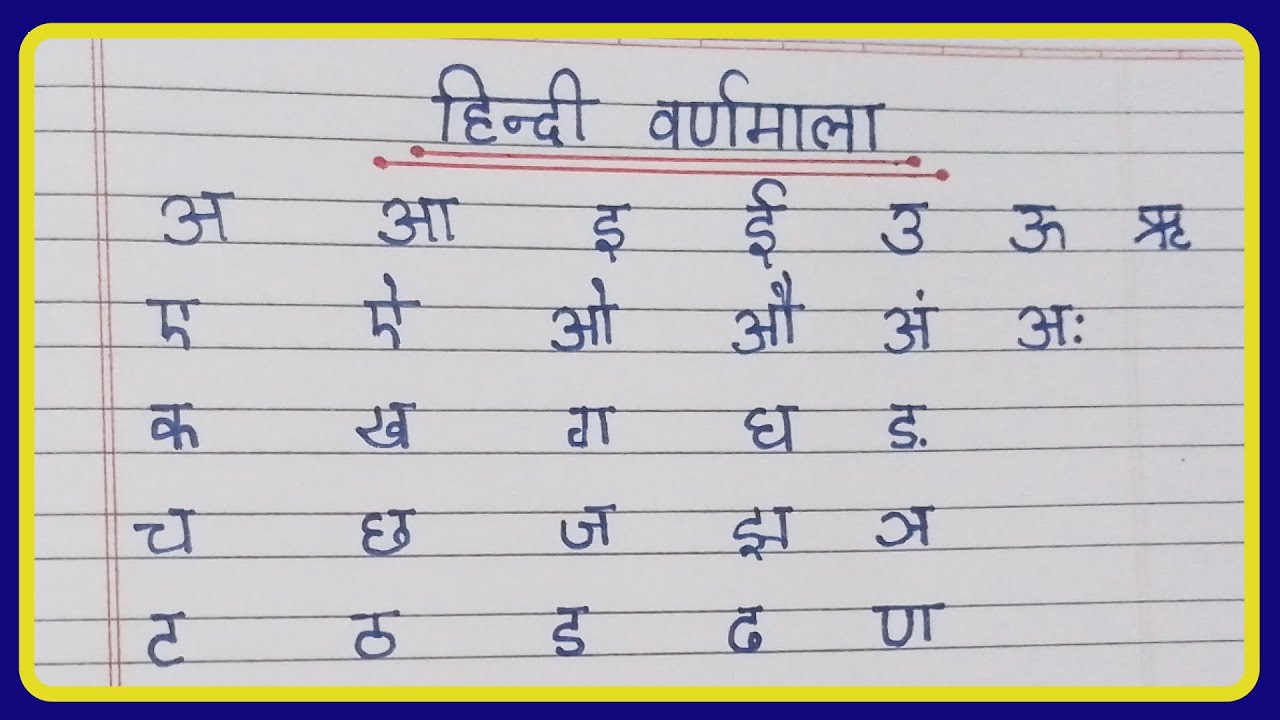 हिन्दी वर्णमाला
अ आ इ ई उ ऊ ऋ
ए ऐ ओ औ अं अः
क ख ग घ ङ
च छ ज झ ञ
ट ठ ड ढ ण